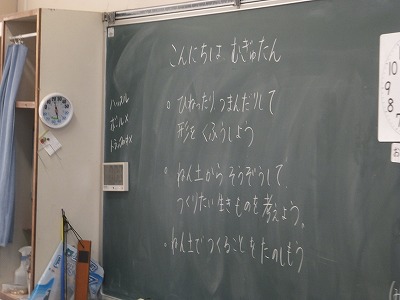 こんにちは むぎゅたん
ハッスル
ボール×
。ひねったりつまんだりして
形をくふうしよう
。ねん土からそうぞうして、
つくりたい生きものを考えよう。
・ねん土でつくることをたのしもう
10
9
8
7
お